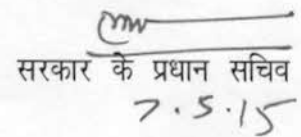 सरकार के प्रधान सचिव
7.5.15